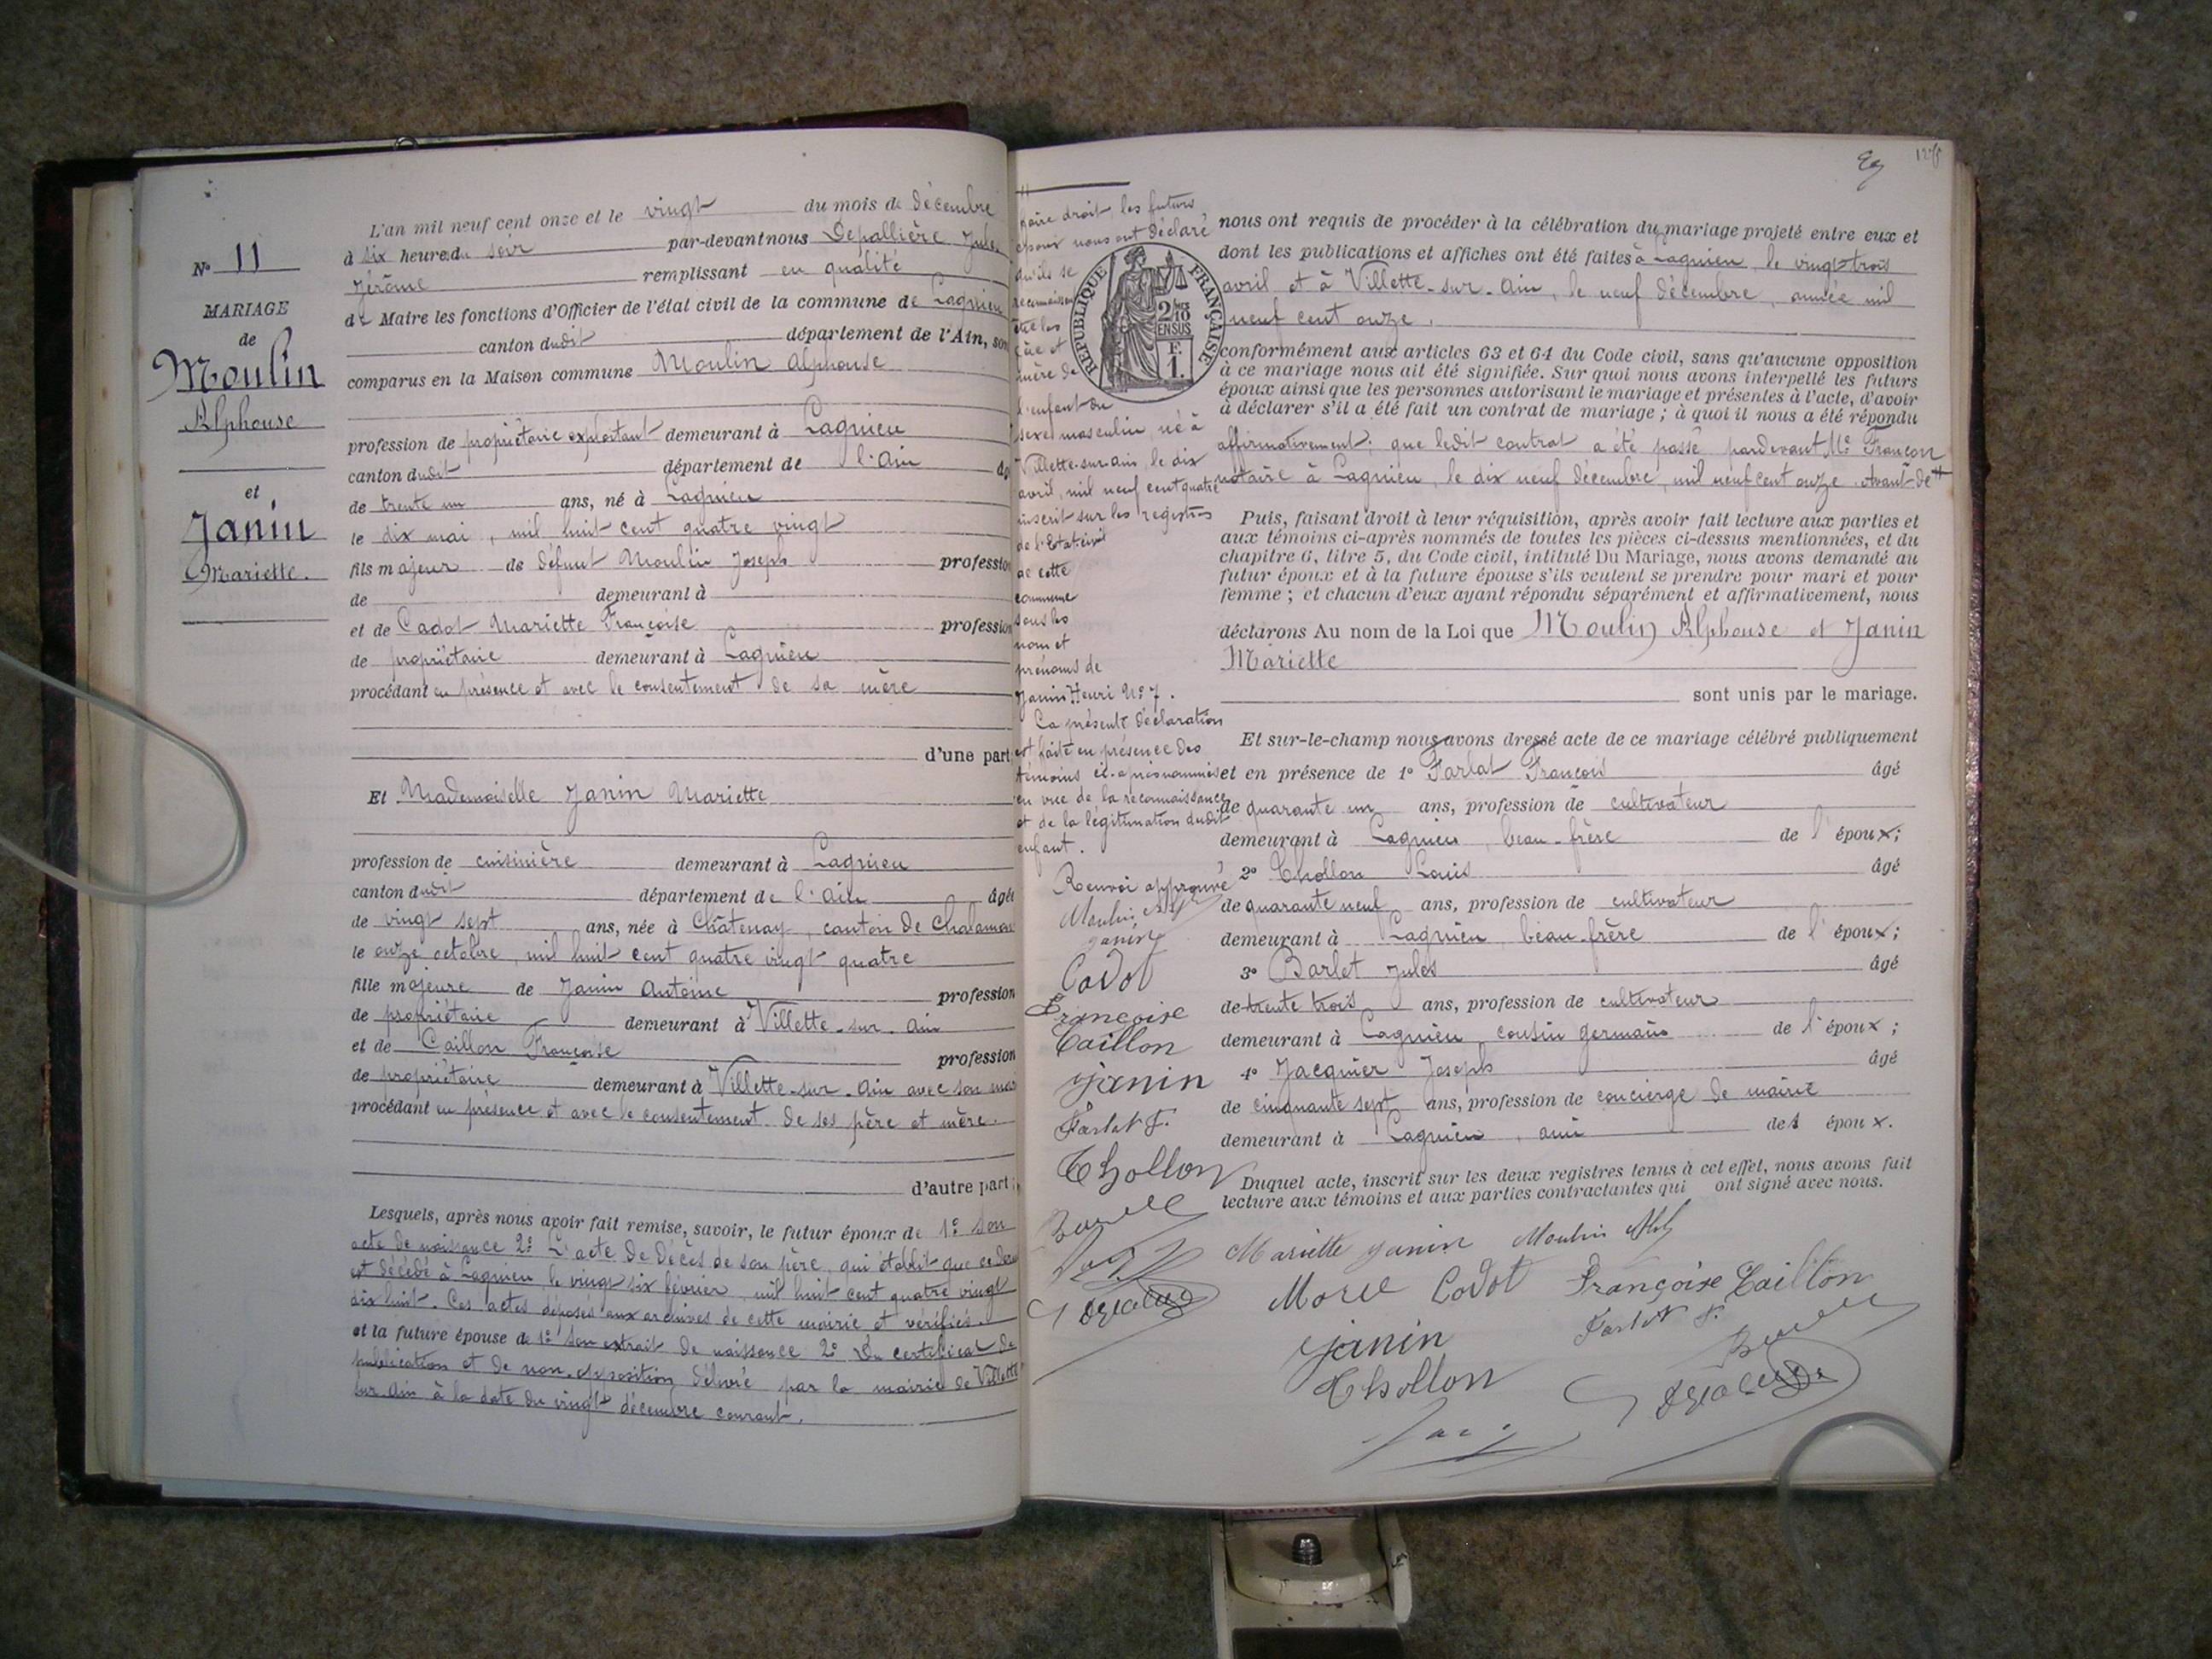 N° 11
MARIAGE
de
Moulin
Alphonse
et
Janin
Mariette.
L'an mil neuf cent onze et le vingt du mois de décembre
à six heures du soir par-devant nous Depallière Jules
Jérôme remplissant en qualité
de Maire les fonctions d'Officier de l'état civil de la commune de Lagnieu
canton dudit département de l'Ain, son
comparus en la Maison commune Moulin Alphonse
profession de propriétaire exploitant demeurant à Lagnieu
canton dudit département de l'Ain âgé
de trente un ans, né à Lagnieu
le dix mai, mil huit cent quatre vingt
fils majeur de défunt Moulin Joseph profession
de demeurant à
et de Cadot Mariette Françoise profession
de propriétaire demeurant à Lagnieu
procédant en présence et avec le consentement de sa mère
d'une part
Et Mademoiselle Janin Mariette
profession de cuisinière demeurant à Lagnieu
canton dudit département de l'Ain âgée
de vingt sept ans, née à Châtenay, canton de Chalamont
le onze octobre, mil huit cent quatre vingt quatre
fille majeure de Janin Antoine profession
de propriétaire demeurant à Villette-sur-Ain
et de Caillon Françoise profession
de propriétaire demeurant à Villette-sur-Ain avec son mari
procédant en présence et avec le consentement de ses père et mère.
d'autre part;
Lesquels, après nous avoir fait remise, savoir, le futur époux de 1° son
acte de naissance 2° L'acte de décès de son père, qui établit que ce
est décédé à Lagnieu le vingt six février, mil huit cent quatre vingt
dix huit. Ces actes déposés aux archives de cette mairie et vérifiés.
et la future épouse de 1° son extrait de naissance 2° Du certificat de
publication et de non-opposition délivré par la mairie de Villette
sur-Ain à la date du vingt décembre courant.
faire droit, les futurs
époux nous ont déclaré
qu'ils se
reconnaissent
être les
père et
mère de
l'enfant du
sexe masculin, né à
Villette-sur-Ain, le dix
avril, mil neuf cent quatre
inscrit sur les registres
de l'Etat-civil
de cette
commune
sous les
nom et
prénoms de
Janin Henri N° 7.
La présente déclaration
est faite en présence des
témoins ci-après nommés
en vue de la reconnaissance
et de la légitimation dudit
enfant.
Renvoi approuvé
Moulin Alph
Janin
Cadot
Françoise
Caillon
Janin
Farlat F.
Chollon
REPUBLIQUE FRANÇAISE
2/10
EN SUS
F.
1.
nous ont requis de procéder à la célébration du mariage projeté entre eux et
dont les publications et affiches ont été faites à Lagnieu, le vingt-trois
avril et à Villette-sur-Ain, le neuf décembre, année mil
neuf cent onze.
conformément aux articles 63 et 64 du Code civil, sans qu'aucune opposition
à ce mariage nous ait été signifiée. Sur quoi nous avons interpellé les futurs
époux ainsi que les personnes autorisant le mariage et présentes à l'acte, d'avoir
à déclarer s'il a été fait un contrat de mariage; à quoi il nous a été répondu
affirmativement; que ledit contrat a été passé pardevant Me Françon
notaire à Lagnieu, le dix neuf décembre, mil neuf cent onze. Avant de #
Puis, faisant droit à leur réquisition, après avoir fait lecture aux parties et
aux témoins ci-après nommés de toutes les pièces ci-dessus mentionnées, et du
chapitre 6, titre 5, du Code civil, intitulé Du Mariage, nous avons demandé au
futur époux et à la future épouse s'ils veulent se prendre pour mari et pour
femme; et chacun d'eux ayant répondu séparément et affirmativement, nous
déclarons Au nom de la Loi que Moulin Alphonse et Janin
Mariette
sont unis par le mariage.
Et sur-le-champ nous avons dressé acte de ce mariage célébré publiquement
et en présence de 1° Farlat François âgé
de quarante un ans, profession de cultivateur
demeurant à Lagnieu, beau-frère de l'époux;
2° Chollon Louis âgé
de quarante neuf ans, profession de cultivateur
demeurant à Lagnieu, beau-frère de l'époux;
3° Barlet Jules âgé
de trente trois ans, profession de cultivateur
demeurant à Lagnieu cousin germain de l'époux;
4° Jacquier Joseph âgé
de cinquante sept ans, profession de concierge de mairie
demeurant à Lagnieu, ami des époux.
Duquel acte, inscrit sur les deux registres tenus à cet effet, nous avons fait
lecture aux témoins et aux parties contractantes qui ont signé avec nous.
Mariette Janin Moulin Alph
Cadot Françoise Caillon
Janin Farlat F.
Chollon